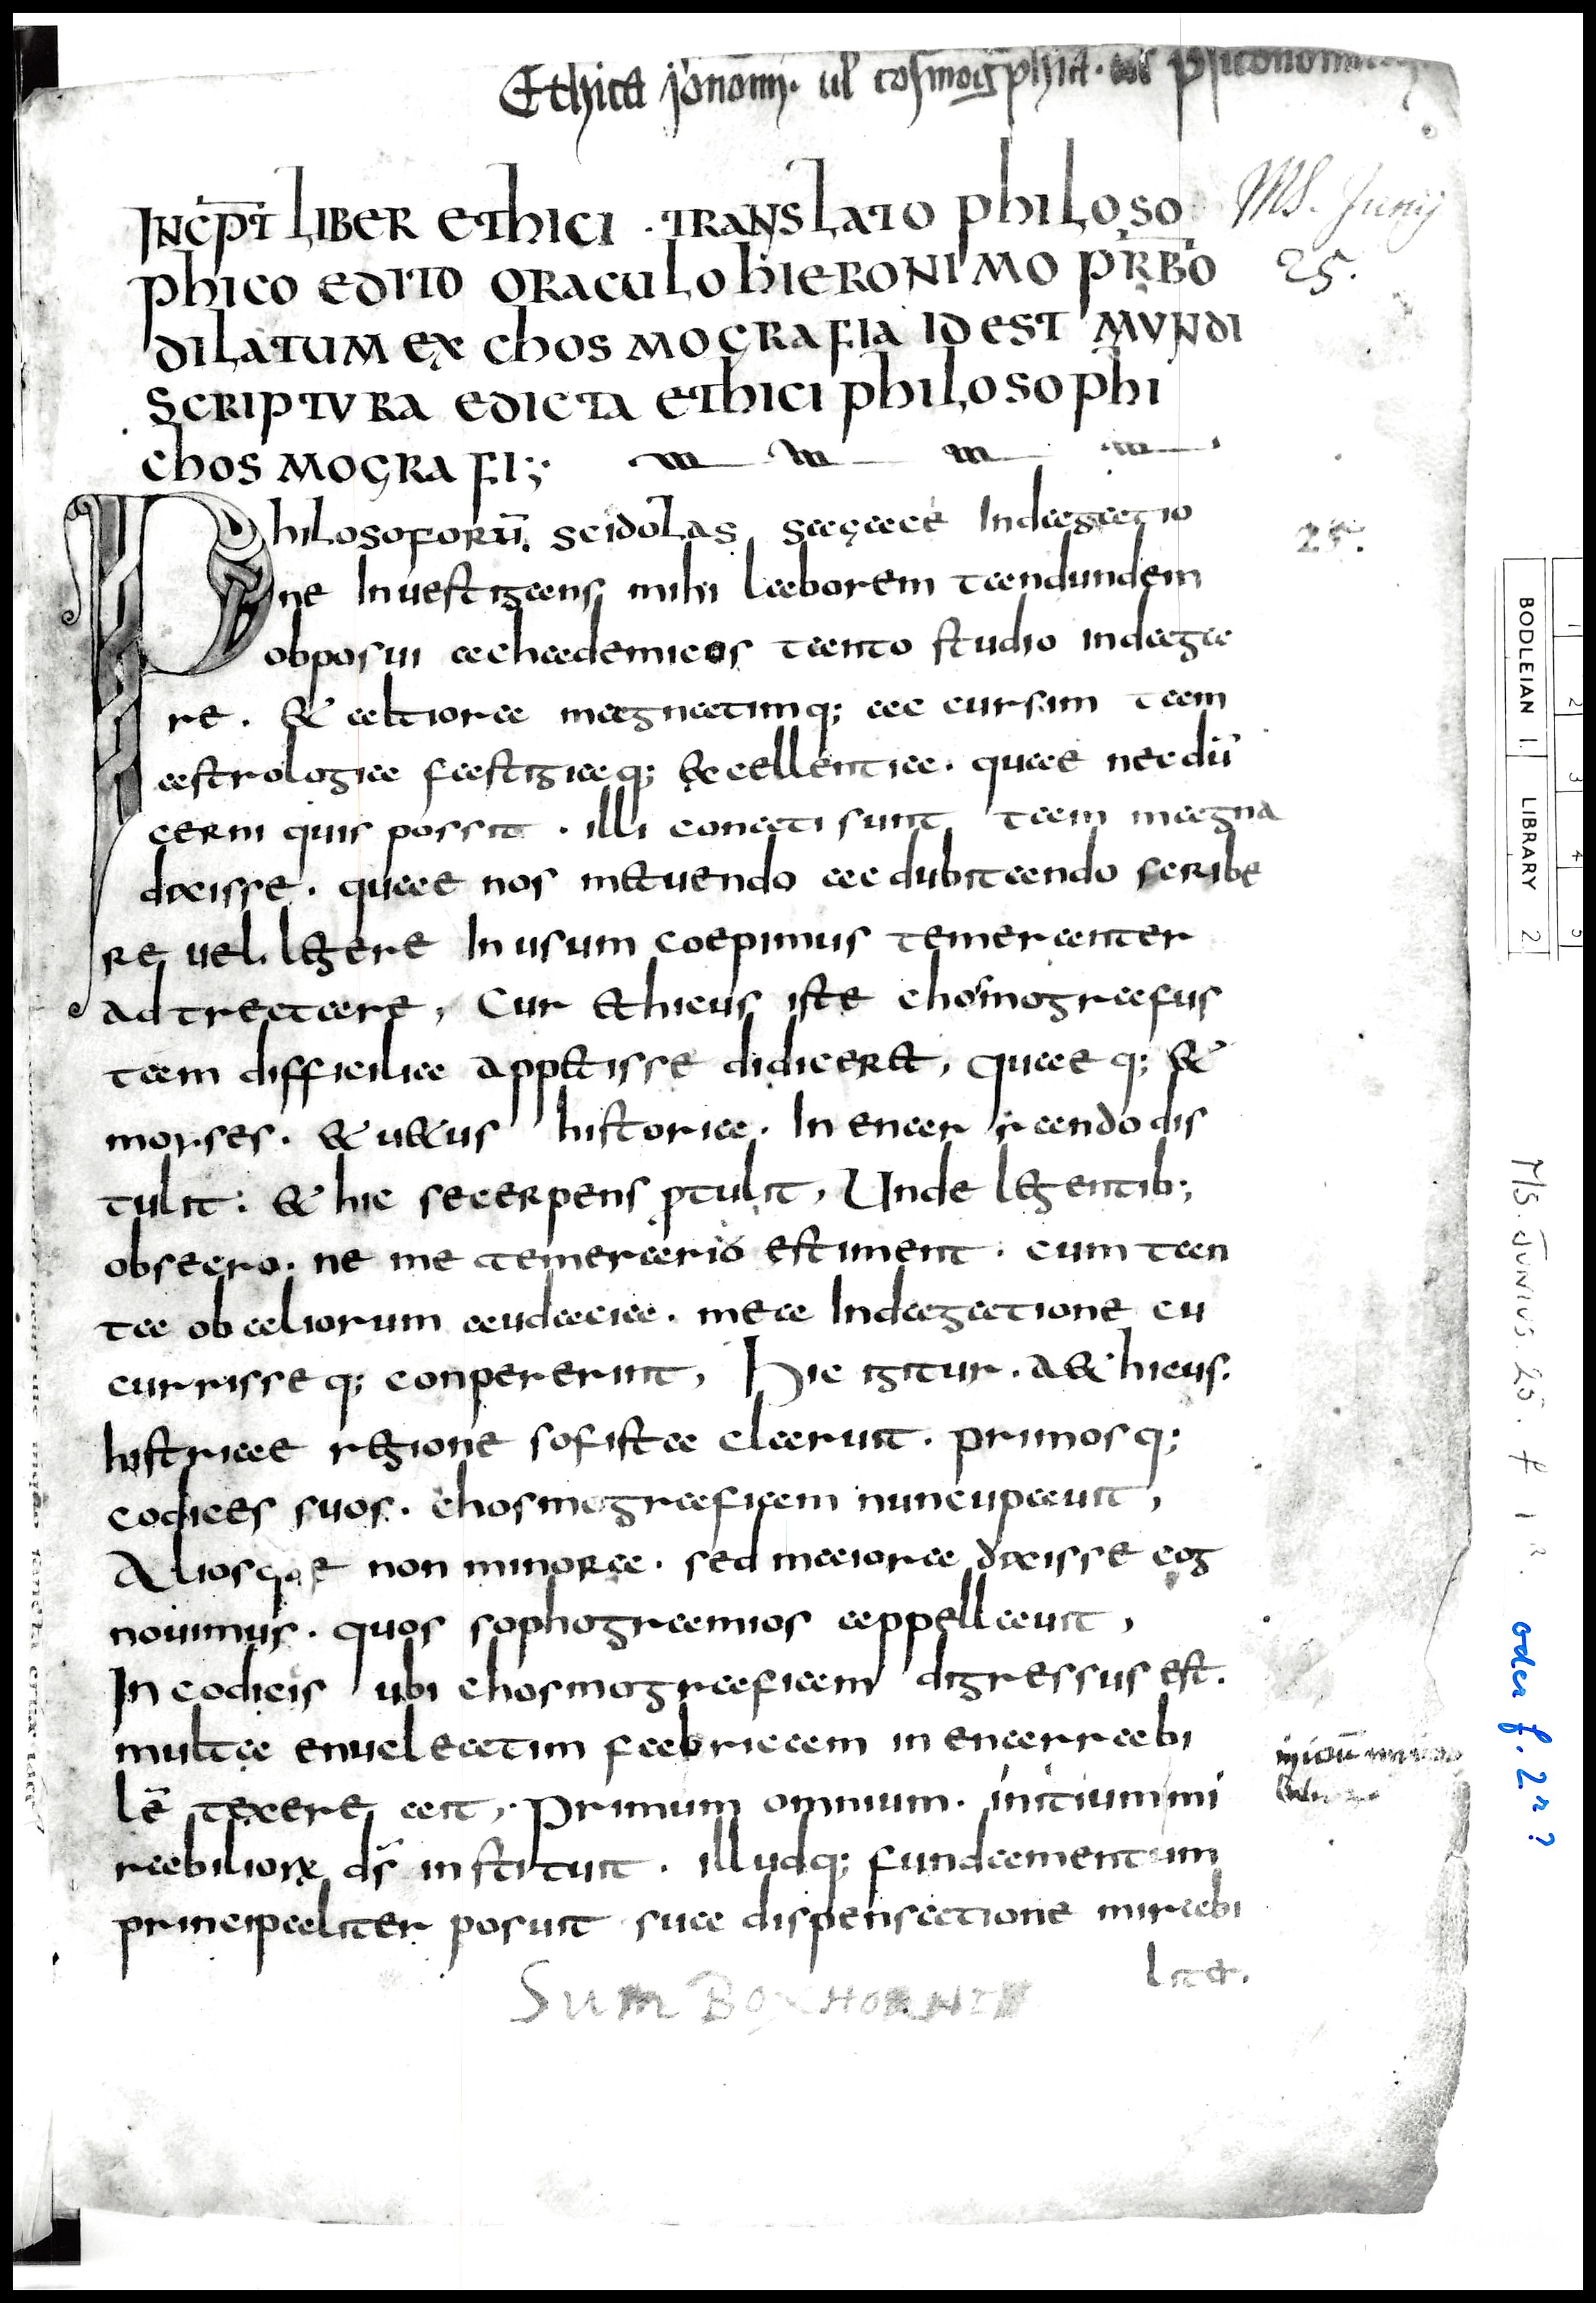 Ethica
MS. Junij
25.
INCP̄T LIBER ETHICI · TRANSLATO PHILOSO
PHICO EDITO ORACULO HIERONIMO PR̄BO
DILATUM EX CHOSMOGRAFIA ID EST MUNDI
SCRIPTURA EDICTA ETHICI PHILOSOPHI
CHOSMOGRAFI;
Philosoforū scidolas sagace Indagatio
ne Inuestigans mihi laborem tandundem
obposui achademicos tanto studio indaga
re . & altiora magnatimq; ac cursim tam
astrologia fastigiaq; &cellentia . quae necdū
cerni quis possit . illi conati sunt tam magna
dixisse . quae nos metuendo ac dubitando scribe
re uel legere In usum coepimus temeranter
adtrectare, Cur ethicus iste chosmografus
tam difficilia appetisse didiceret, quaeq; &
morses . & u&us historiae . In enarrando dis
tulit : & hic secerpens ptulit, Unde legentib;
obsecro . ne me temerario estiment . cum tan
ta ob aliorum audacia . mea Indagatione cu
currisse q; conpererint, Hic igitur . a&hicus .
histriae regione sofista claruit . primosq;
codices suos . chosmograficam nuncupauit,
Aliosque non minora . sed maiora dixisse cog
nouimus . quos sophogramios appellauit,
In codicis ubi chosmograficam digressus est .
multa enucleatim fabricam in enarrabi
lē texere ait, Primum omnium . initium mi
rabiliorx dš instituit . illudq; fundamentum
principaliter posuit sua dispensatione mirabi
liter.
25.
Sum BOXHORNII
BODLEIAN LIBRARY
1 2 3 4 5
1. 2.
MS. JUNIUS. 25. f 1 R.
oder f. 2r?